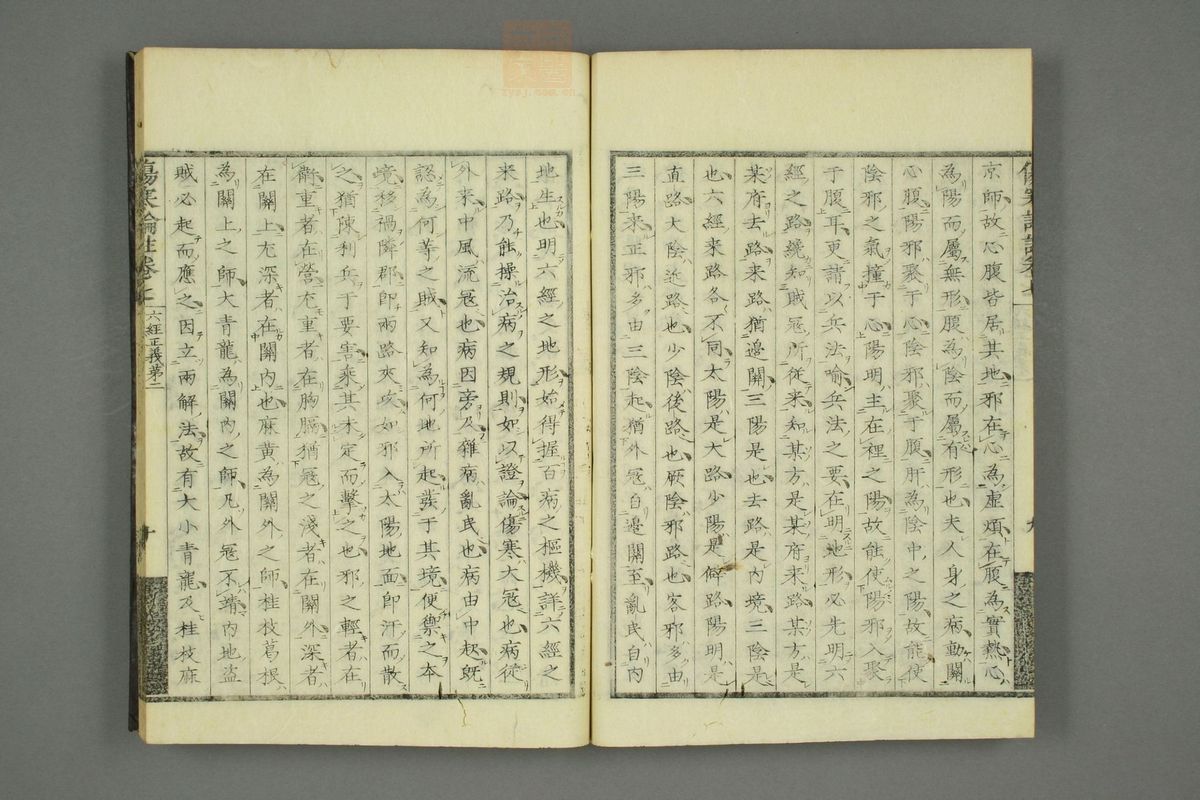 京師故心腹皆居其地邪在心為虛煩在腹為實熱心
為陽而屬無形腹為陰而屬有形也夫人身之病動關
心腹陽邪聚于心陰邪聚于腹肝為陰中之陽故能使
陰邪之氣撞于心陽明主在裡之陽故能使陽邪入聚
于腹耳更請以兵法喻兵法之要在明地形必先明六
經之路纔知賊寇所從来知某方是某府来路某方是
某府去路来路猶邊關三陽是也去路是内境三陰是
也六經来路各不同太陽是大路少陽是僻路陽明是
直路大陰近路也少陰後路也厥陰邪路也客邪多由
三陽来正邪多由三陰起猶外冦自邊關至亂民自内
地生也明六經之地形始得握百病之樞機詳六經之
来路乃能操治病之規則如以證論傷寒大冦也病從
外来中風流冦也病因旁及雜病亂民也病由中起既
認為何等之賊又知為何地所起發于其境便禦之本
境移禍隣郡即兩路夾攻如邪入太陽地面即汗而散
之猶陳利兵于要害乘其未定而擊之也邪之輕者在
衛重者在營尤重者在胸膈猶冦之淺者在關外深者
在關上尤深者在關内也麻黄為關外之師桂枝葛根
為關上之師大青龍為關内之師凡外冦不靖内地盗
賊必起而應之因立兩解法故有大小青龍及桂枝麻
傷寒論註卷七
六經正義第二
十
九